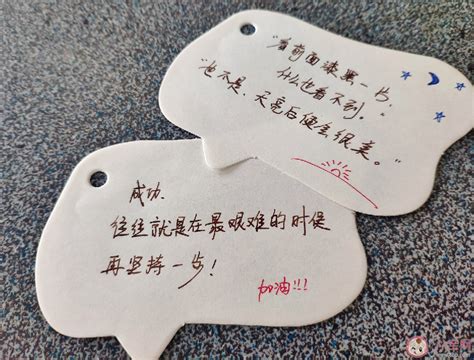 “看前面漆黑一片,
什么也看不到。”
“也不是,天亮后便会很美。”
成功,
往往就是在最艰难的时候
再坚持一步!
加油!!!